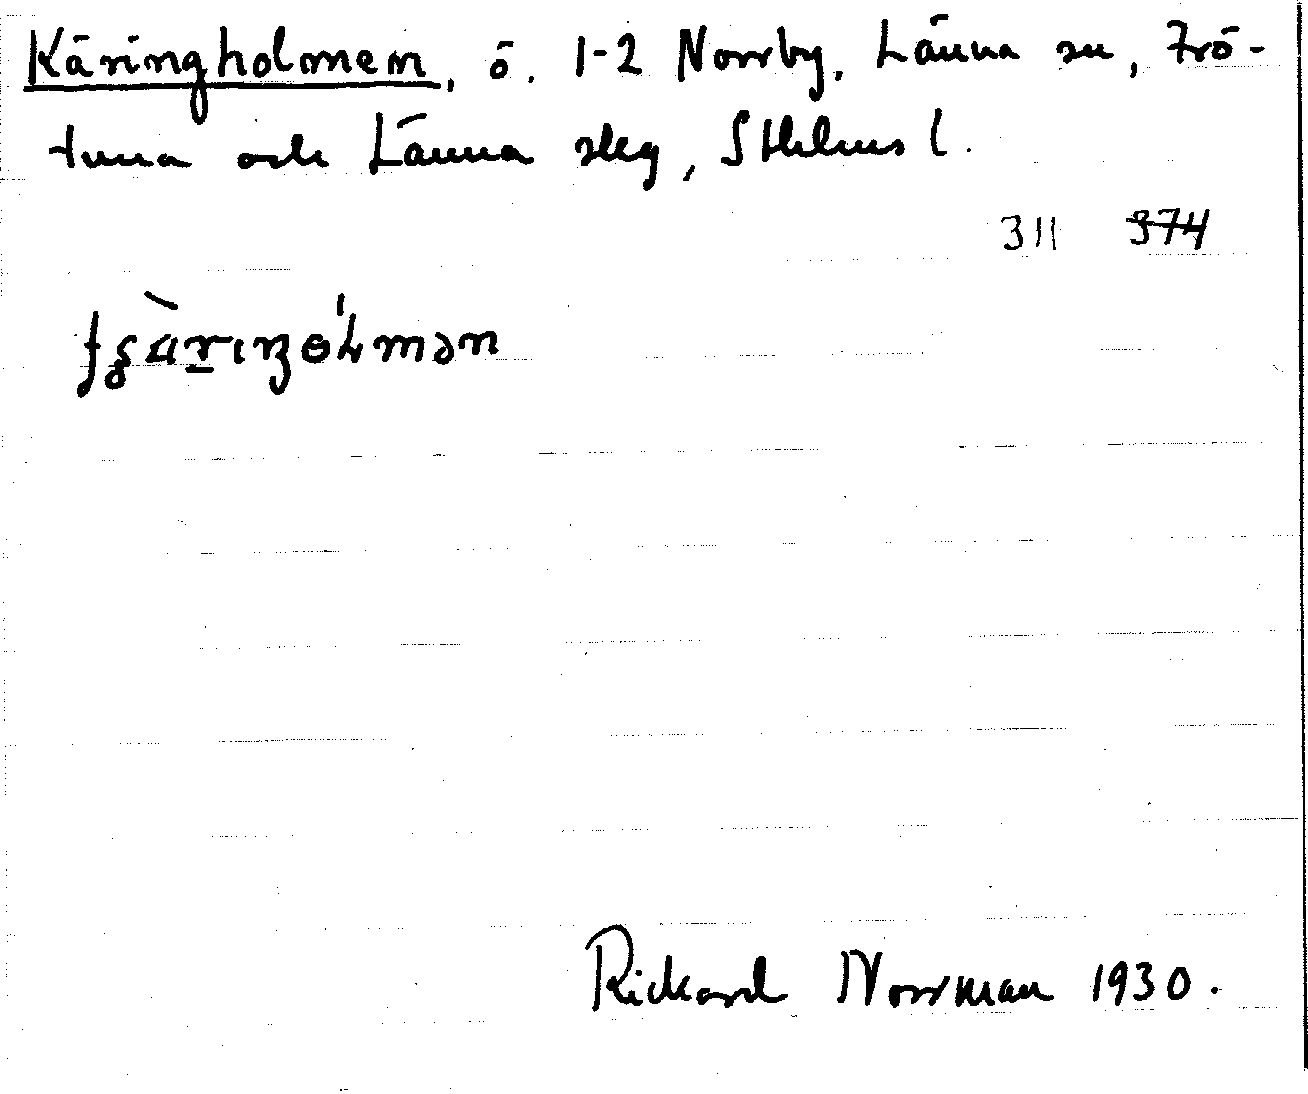 Käringholmen, ö. 1-2 Norrby, Länna sn, Frö-
tuna och Länna slg, Sthlms l.
311 374
Rickard Norrman 1930.